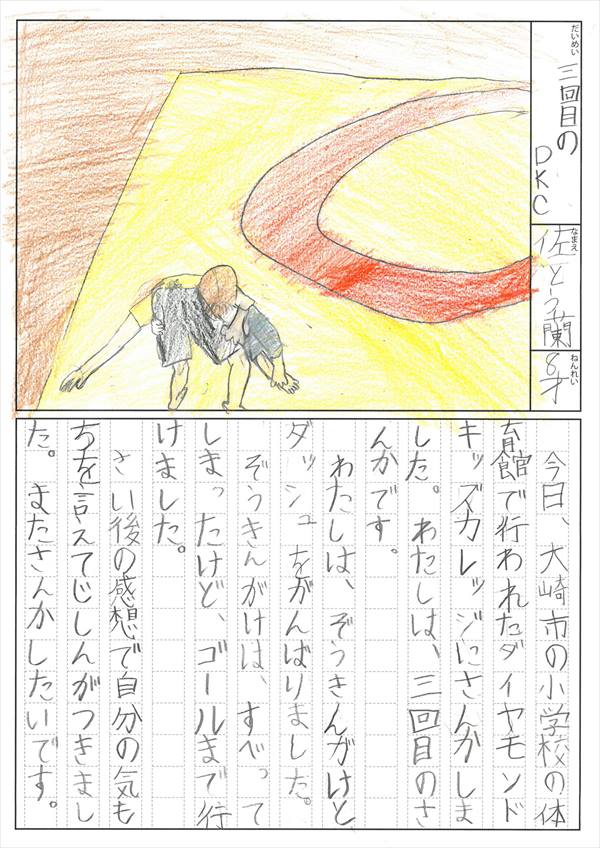 だいめい
三回目の
DKC
なまえ
佐とう蘭
ねんれい
8才
今日、大崎市の小学校の体
育館で行われたダイヤモンド
キッズカレッジにさんかしま
した。わたしは、三回目のさ
んかです。
わたしは、ぞうきんがけと
ダッシュをがんばりました。
ぞうきんがけは、すべって
しまったけど、ゴールまで行
けました。
さい後の感想で自分の気も
ちを言えてじしんがつきまし
た。またさんかしたいです。